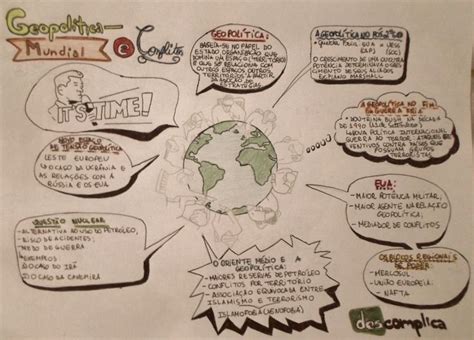 Geopolítica
Mundial
e Conflitos
IT'S TIME!
GEOPOLÍTICA:
BASEIA-SE NO PAPEL DO
ESTADO ORGANIZAÇÃO QUE
DOMINA UM ESPAÇO (TERRITÓRIO)
E QUE SE RELACIONA COM
OUTROS ESPAÇOS (OUTROS
TERRITÓRIOS) A PARTIR
DA
ESTRATÉGIAS
A GEOPOLÍTICA NO
EUA) (SOC)
O CRESCIMENTO DE UMA
POTÊNCIA DETERMINARIA O
CIMENTO DE SEUS ALIADOS
PLANO MARSHALL
A GEOPOLÍTICA NO FIM
DA GUERRA FRIA
- DOUTRINA BUSH NA DÉCADA
DE 1990
NOVA POLÍTICA INTERNACIONAL
GUERRA AO TERROR, ATAQUES
VENTIVOS CONTRA PAÍSES QUE
POSSUAM GRUPOS
TERRORISTAS
NOVO
DE TENSÃO GEOPOLÍTICA
LESTE EUROPEU
O CASO DA UCRÂNIA E
AS RELAÇÕES COM A
RÚSSIA E OS EUA
EUA:
- MAIOR POTÊNCIA MILITAR,
- MAIOR AGENTE NA RELAÇÃO
GEOPOLÍTICA,
- MEDIADOR DE CONFLITOS
QUESTÃO NUCLEAR
- ALTERNATIVA AO USO DO PETRÓLEO,
- RISCO DE ACIDENTES,
- MEDO DE GUERRA
EXEMPLOS
O CASO DO IRÃ
O CASO DA CAXEMIRA
O ORIENTE MÉDIO E A
GEOPOLÍTICA:
- MAIORES RESERVAS DE PETRÓLEO
- CONFLITOS POR TERRITÓRIO
- ASSOCIAÇÃO EQUIVOCADA ENTRE
ISLAMISMO E TERRORISMO
ISLAMOFOBIA (XENOFOBIA)
OS BLOCOS REGIONAIS
DE PODER
- MERCOSUL
- UNIÃO EUROPEIA
- NAFTA
descomplica